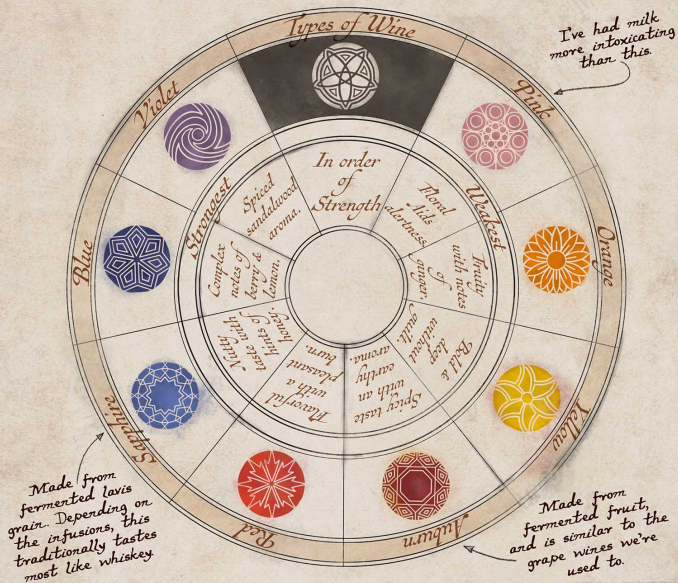 Types of Wine
Pink
Orange
Yellow
Auburn
Red
Sapphire
Blue
Violet
In order
of
Strength
Weakest
Strongest
Floral
Aids
alertness.
Fruity
with notes
of
ginger.
Bold &
deep
without
guilt.
Spicy taste
with an
earthy
aroma.
Flavorful
with a
pleasant
burn.
Nutty
taste with
hints of
honey.
Complex
notes of
berry &
lemon.
Spiced
sandalwood
aroma.
I've had milk
more intoxicating
than this.
Made from
fermented lavis
grain. Depending on
the infusions, this
traditionally tastes
most like whiskey
Made from
fermented fruit,
and is similar to the
grape wines we're
used to.